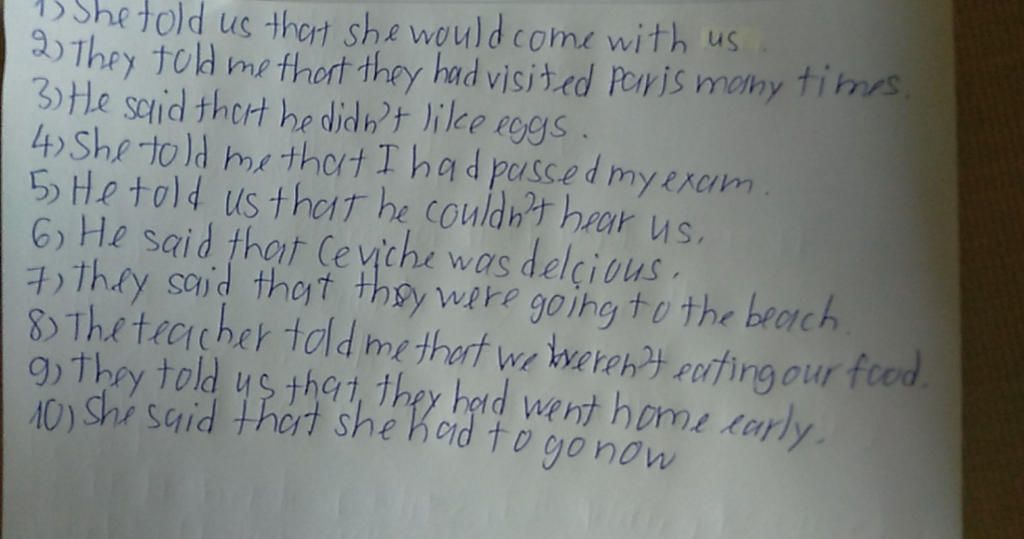 1) She told us that she would come with us.
2) They told me that they had visited Paris many times.
3) He said that he didn't like eggs.
4) She told me that I had passed my exam.
5) He told us that he couldn't hear us.
6) He said that Ceviche was delcious.
7) They said that they were going to the beach.
8) The teacher told me that we weren't eating our food.
9) They told us that they had went home early.
10) She said that she had to go now